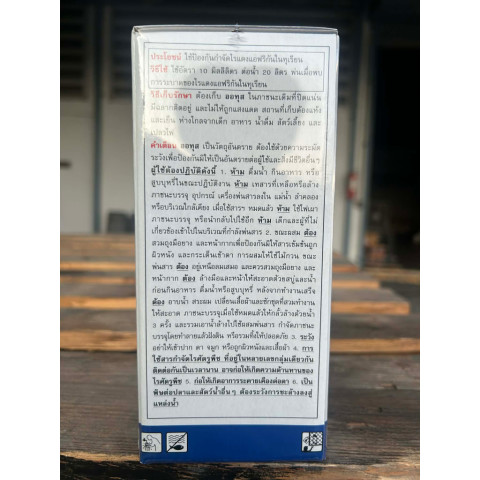 ประโยชน์ ใช้ป้องกันกำจัดไรแดงแอฟริกันในทุเรียน
วิธีใช้ ใช้อัตรา 10 มิลลิลิตร ต่อน้ำ 20 ลิตร พ่นเมื่อพบ
การระบาดของไรแดงแอฟริกันในทุเรียน
วิธีเก็บรักษา ต้องเก็บ ออทุส ในภาชนะเดิมที่ปิดแน่น
มีฉลากติดอยู่ และไม่ให้ถูกแสงแดด สถานที่เก็บต้องแห้ง
และเย็น ห่างไกลจากเด็ก อาหาร น้ำดื่ม สัตว์เลี้ยง และ
เปลวไฟ
คำเตือน ออทุส เป็นวัตถุอันตราย ต้องใช้ด้วยความระมัด
ระวังเพื่อป้องกันมิให้เป็นอันตรายต่อผู้ใช้และสิ่งมีชีวิตอื่นๆ
ผู้ใช้ต้องปฏิบัติดังนี้ 1. ห้าม ดื่มน้ำ กินอาหาร หรือ
สูบบุหรี่ในขณะปฏิบัติงาน ห้าม เทสารที่เหลือหรือล้าง
ภาชนะบรรจุ อุปกรณ์ เครื่องพ่นสารลงใน แม่น้ำ ลำคลอง
หรือบริเวณใกล้เคียง เมื่อใช้สารฯ หมดแล้ว ห้าม ใช้ไฟเผา
ภาชนะบรรจุ หรือนำกลับไปใช้อีก ห้าม เด็กและผู้ที่ไม่
เกี่ยวข้องเข้าไปในบริเวณที่กำลังพ่นสาร 2. ขณะผสม ต้อง
สวมถุงมือยาง และหน้ากากเพื่อป้องกันมิให้สารเข้มข้นถูก
ผิวหนัง และกระเด็นเข้าตา การผสมให้ใช้ไม้กวน ขณะ
พ่นสาร ต้อง อยู่เหนือลมเสมอ และควรสวมถุงมือยาง และ
หน้ากาก ต้อง ล้างมือและหน้าให้สะอาดด้วยสบู่และน้ำ
ก่อนกินอาหาร ดื่มน้ำหรือสูบบุหรี่ หลังจากทำงานเสร็จ
ต้อง อาบน้ำ สระผม เปลี่ยนเสื้อผ้าและซักชุดที่สวมทำงาน
ให้สะอาด ภาชนะบรรจุเมื่อใช้หมดแล้วให้กลั้วล้างด้วยน้ำ
3 ครั้ง และรวมเอาน้ำล้างไปใช้ผสมพ่นสาร กำจัดภาชนะ
บรรจุโดยทำลายแล้วฝังดิน หรือรวมทิ้งให้ปลอดภัย 3. ระวัง
อย่าให้เข้าปาก ตา จมูก หรือถูกผิวหนังและเสื้อผ้า 4. การ
ใช้สารกำจัดไรศัตรูพืช ที่อยู่ในหลายเลขกลุ่มเดียวกัน
ติดต่อกันเป็นเวลานาน อาจก่อให้เกิดความต้านทานของ
ไรศัตรูพืช 5. ก่อให้เกิดอาการระคายเคืองต่อตา 6. เป็น
พิษต่อปลาและสัตว์น้ำอื่นๆ ต้องระวังการชะล้างลงสู่
แหล่งน้ำ